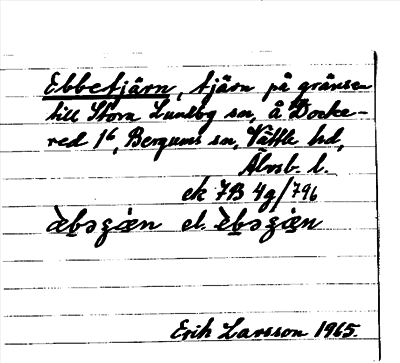 Ebbetjärn, tjärn på gränsen
till Stora Lundby sn, å Docke-
red 1⁶, Bergums sn, Vättle hd,
Älvsb. l.
ek 7B 4g/796
el.
Erik Larsson 1965